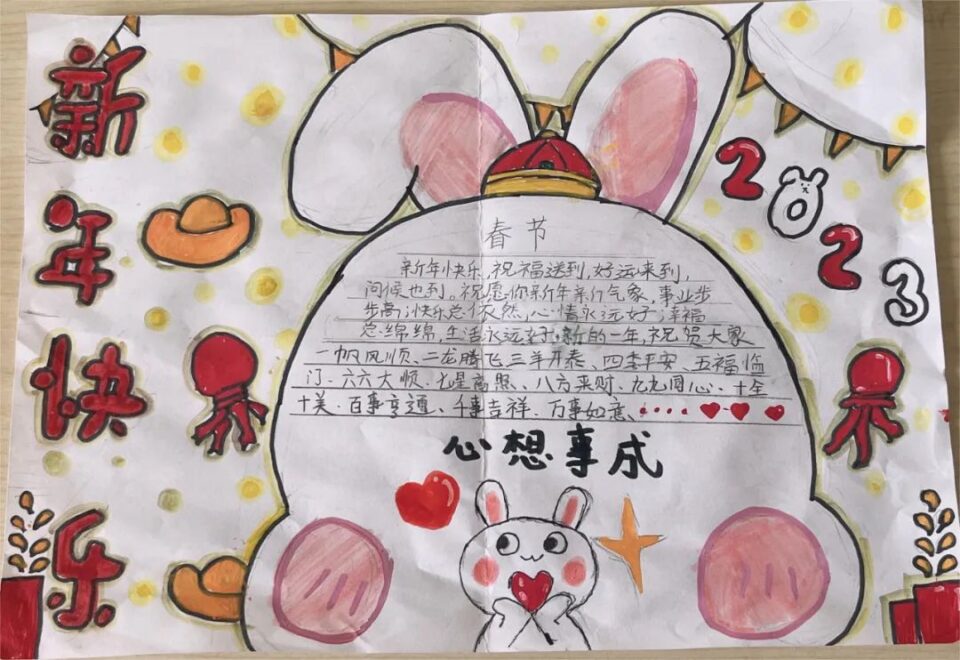 新年快乐
2023
春节
新年快乐,祝福送到,好运来到,
问候也到。祝愿你新年新行气象,事业步
步高,快乐总依然,心情永远好,幸福
总绵绵,生活永远好,新的一年,祝贺大家
一帆风顺、二龙腾飞、三羊开泰、四季平安、五福临
门、六六大顺、七星高照、八方来财、九九同心、十全
十美、百事亨通、千事吉祥、万事如意、
心想事成